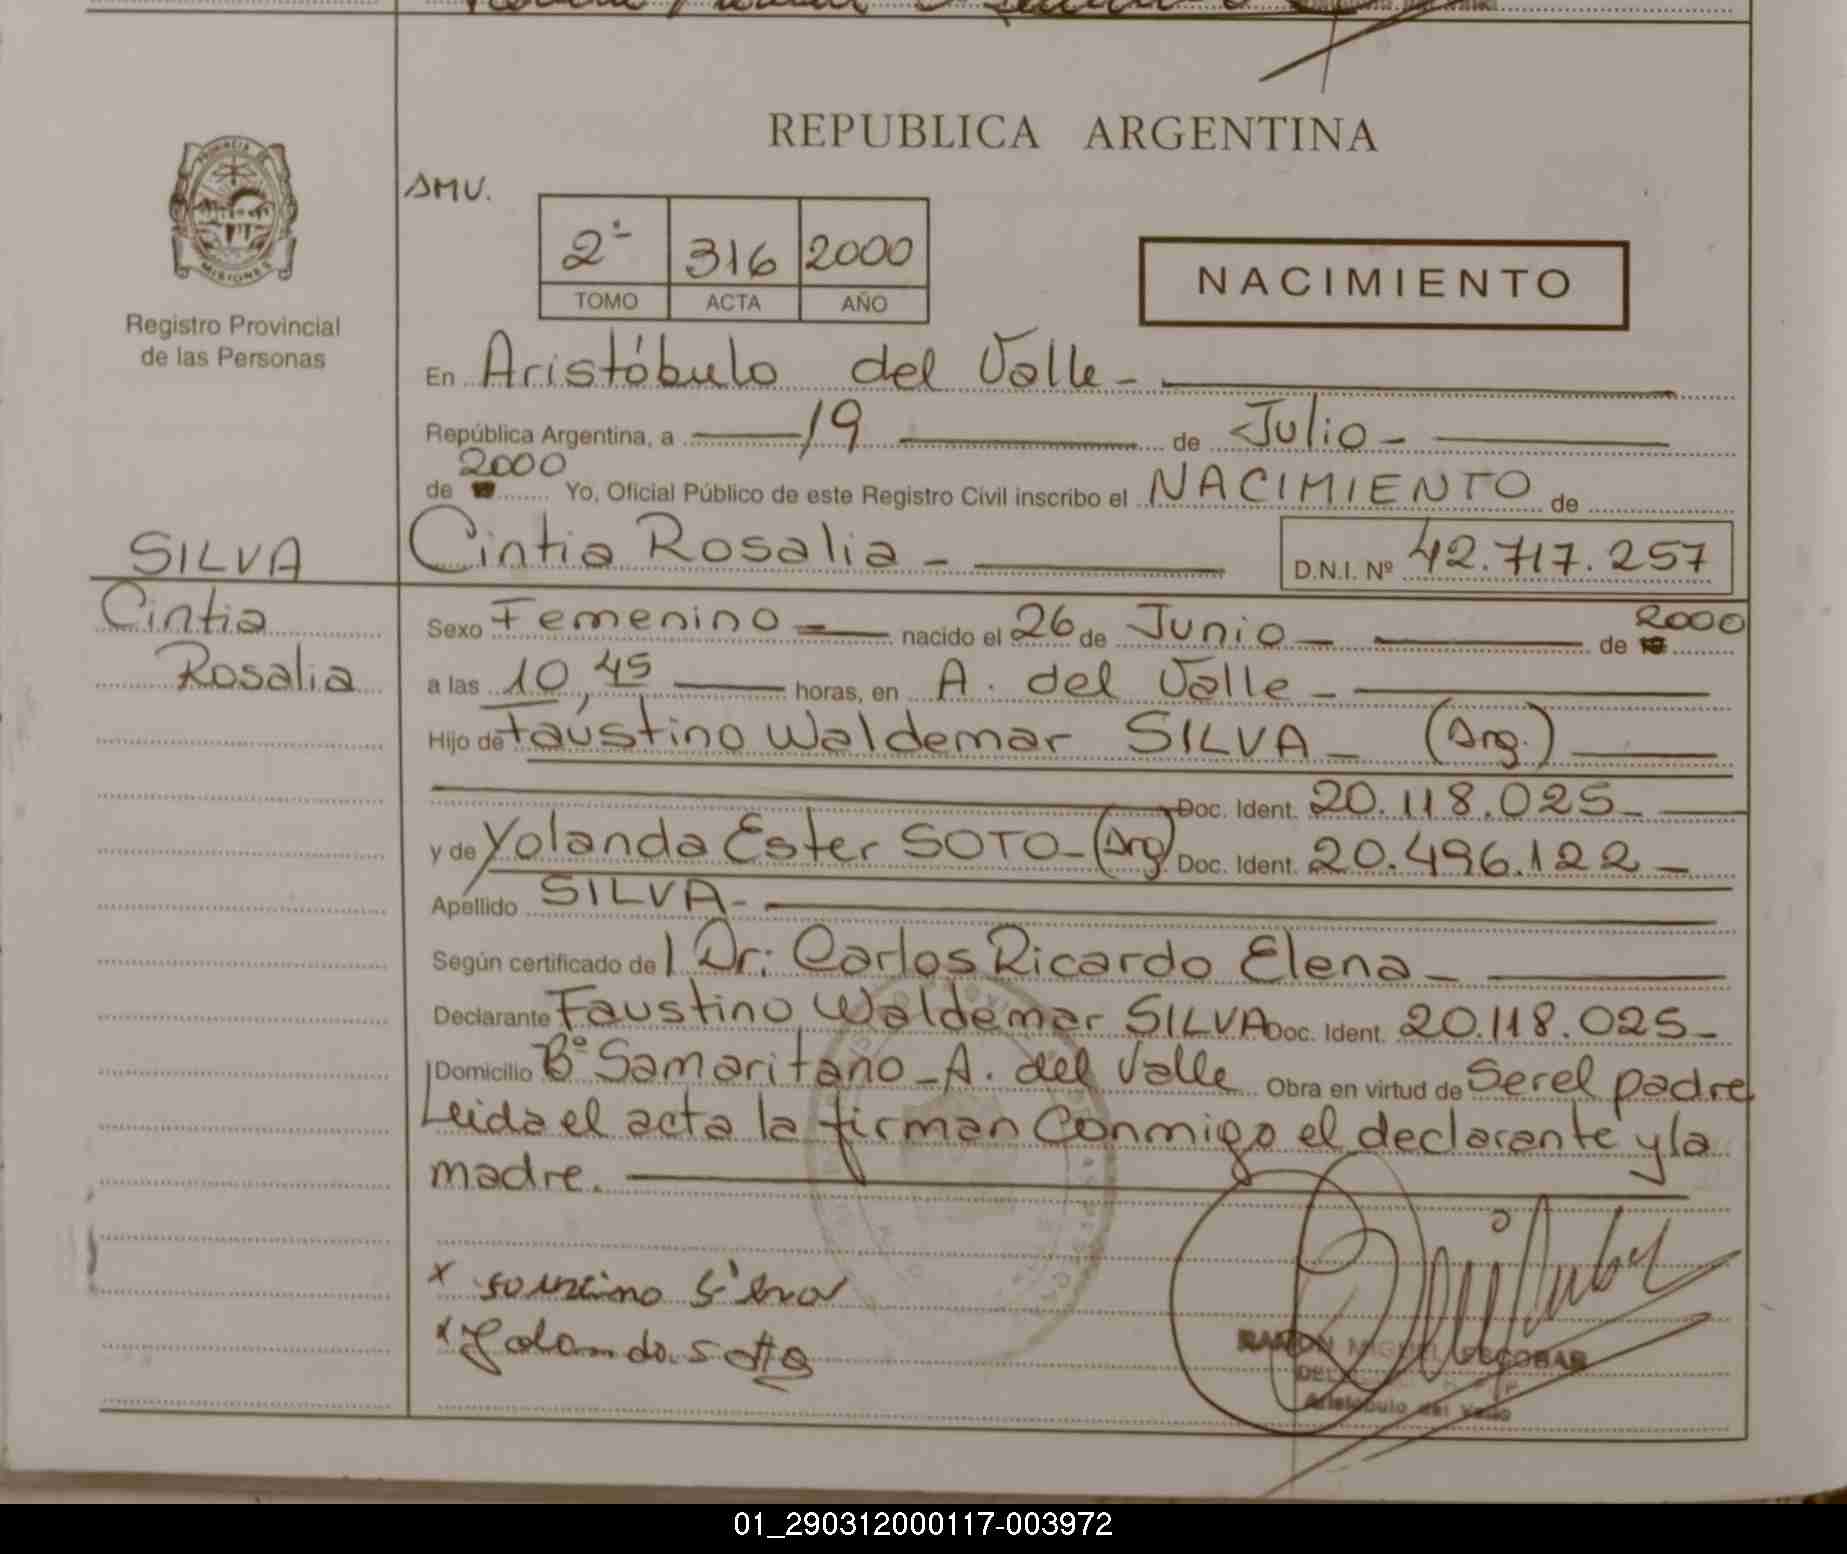 REPUBLICA ARGENTINA
PROVINCIA DE
MISIONES
Registro Provincial
de las Personas
SMV.
2ª 316 2000
TOMO ACTA AÑO
NACIMIENTO
En Aristóbulo del Valle -
República Argentina, a 19 de Julio -
2000
de Yo, Oficial Público de este Registro Civil inscribo el NACIMIENTO de
SILVA
Cintia Rosalia - D.N.I. Nº 42.717.257
Cintia
Rosalia
Sexo Femenino - nacido el 26 de Junio - de 2000
a las 10,45 horas, en A. del Valle -
Hijo de Faustino Waldemar SILVA (Arg.)
Doc. Ident. 20.118.025 -
y de Yolanda Ester SOTO - (Arg) Doc. Ident. 20.496.122 -
Apellido SILVA -
Según certificado de l Dr: Carlos Ricardo Elena -
Declarante Faustino Waldemar SILVA Doc. Ident. 20.118.025 -
Domicilio Bº Samaritano - A. del Valle Obra en virtud de Ser el padre
Leida el acta la firman Conmigo el declarante y la
madre.
x
x Yolanda Soto
RAMON MIGUEL ESCOBAR
Aristóbulo del Valle
01_290312000117-003972